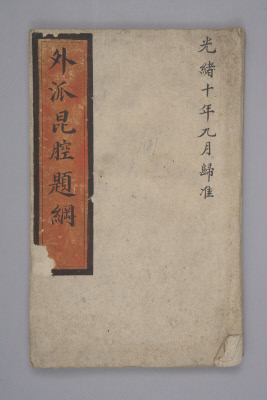 光緒十年九月歸准
外派昆腔題綱